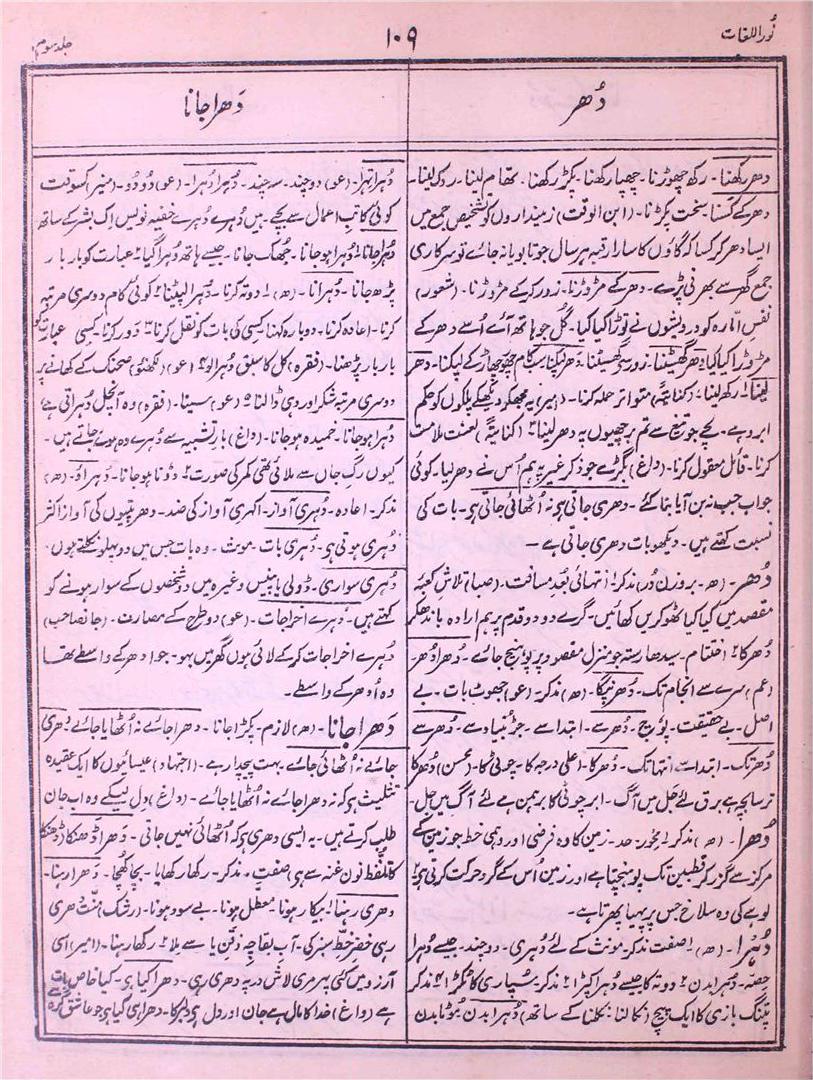 نُور اللغات
۱۰۹
جلد سوم
دُھر
دَھرا جانا
دھر رکھنا۔ رکھ چھوڑنا۔ چھپا رکھنا۔ پکڑ رکھنا۔ تھام لینا۔ روک لینا۔
دھر کے کسنا سخت پکڑنا۔ (ابن الوقت) زمینداروں کو تشخیص جمع میں
ایسا دھر کر کسا کہ گاؤں کا سارا رقبہ ہر سال جوتا بویا نہ جائے تو سرکاری
جمع گھر سے بھرنی پڑے۔ دھر کے مڑوڑنا۔ زور کرکے مڑوڑنا۔ (شعور)
نفسِ امّارہ کو درویشوں نے توڑا کیا کیا۔ کُل جو ہاتھ آئے اُسے دھر کے
مڑوڑا کیا کیا۔ دھر گھسیٹنا۔ زور سے گھسیٹنا۔ دھر لپکنا سب کام چھوڑ چھاڑ کے لپکنا۔ دھر
لینا۱ رکھ لینا۔ (کنایتہً) متواتر حملہ کرنا۔ (امیر) یہ مجھکو دیکھکے پلکوں کو حکم
ابرو ہے۔ بچے جو تیغ سے تم برچھیوں پہ دھر لینا۲ (کنایتہً) لعنت ملامت
کرنا۔ قائل معقول کرنا۔ (داغ) بگڑے جو ذکرِ غیر پہ ہم اُس نے دھر لیا۔ کوئی
جواب جب نہ بن آیا بنا گئے۔ دھری جاتی ہی نہ اُٹھائی جاتی ہی۔ بات کی
نسبت کہتے ہیں۔ دیکھو بات دھری جاتی ہے۔
دُھر۔ (ھ۔ بروزن دُر) مذکر۱ انتہائی بُعد مسافت۔ (صبا) تلاش کعبۂ
مقصد میں کیا کیا ٹھوکریں کھائیں۔ گرے دو دو قدم پر ہم ارادہ باندھکر
دُھر کا۲ اختتام۔ سیدھا رستہ جو منزل مقصود پر پہنچ جائے۔ دُھرا دُھر۔
(عم) سرے سے انجام تک۔ دُھر پٹکا۔ (ھ) مذکر۔ (عو) جھوٹ بات۔ بے
اصل۔ بے حقیقت۔ پوچ۔ دُھر سے۔ ابتدا سے۔ جڑ بنیاد سے۔ دُھر سے
دُھر تک۔ ابتدا سے انتہا تک۔ دُھر کا۔ اعلی درجہ کا۔ چوٹی کا۔ (محسن) دُھر کا
ترسا بچہ ہے برق لئے جَل میں آگ۔ ابر چوٹی کا برہمن ہے لئے آگ میں جَل۔
دُھرا۔ (ھ) مذکر۱ محور۔ حد۔ زمین کا وہ فرضی اور وہمی خط جو زمین کے
مرکز سے گزر کر قطبین تک پہنچتا ہے اور زمین اُس کے گرد حرکت کرتی ہی۲
لوہے کی وہ سلاخ جس پر پہیا پھرتا ہے۔
دُہرا۔ (ھ)۱ صفت مذکر۔ مونث کے لئے دُہری۔ دوچند۔ جیسے دُہرا
حصّہ۔ دُہرا بدن۲ دوتہ کا جیسے دُہرا کپڑا۳ مذکر۔ سُپاری کا ٹکڑا۴ مذکر
پتنگ بازی کا ایک پیچ (نکالنا نکلنا کے ساتھ) دُہرا بدن۔ موٹا بدن
دُہرا تہرا۔ (عو) دوچند۔ سہ چند۔ دُہرا دُہرا۔ (عو) دو دو۔ (منیر) کسوقت
کوئی کاتبِ اعمال سے بچے۔ ہیں دُہرے دُہرے خفیہ نویس اک بشر کے ساتھ
دُہرا جانا۱ دُہرا ہو جانا۔ جھک جانا۔ جیسے ہاتھ دُہرا گیا۲ عبارت کو بار بار
پڑھ جانا۔ دُہرانا۔ (ھ)۱ دوتہ کرنا۔ دُہرا لپیٹنا۲ کوئی کام دوسری مرتبہ
کرنا۔ اعادہ کرنا۔ دوبارہ کہنا کسی کی بات کو نقل کرنا۳ دَور کرنا۔ کسی عبارت کو
بار بار پڑھنا۔ (فقرہ) کل کا سبق دُہرا لو۴ (عو) (لکھنؤ) صحنک کے کھانے پر
دوسری مرتبہ شکر اور دہی ڈالنا۵ (عو) سینا۔ (فقرہ) وہ آنچل دُہراتی ہے
دُہرا ہو جانا۔ خمیدہ ہو جانا۔ (داغ) بارِ تشبیہ سے دُہرے وہ ہوئے جاتے ہیں۔
کیوں رگِ جاں سے ملائی تھی کمر کی صورت۲ دُونا ہو جانا۔ دُہراؤ۔ (ھ)
مذکر۔ اعادہ۔ دُہری آواز۔ اکہری آواز کی ضد۔ دھرپتیوں کی آواز اکثر
دُہری ہوتی ہی۔ دُہری بات۔ مونث۔ وہ بات جس میں دو پہلو نکلتے ہوں۔
دُہری سواری۔ ڈولی یا پینس وغیرہ میں دو شخصوں کے سوار ہونے کو
کہتے ہیں۔ دُہرے اخراجات۔ (عو) دو طرح کے مصارف۔ (جانصاحب)
دُہرے اخراجات کرکے لائی ہوں گھر میں بہو۔ جو ادھر کے واسطے تھا
وہ اُودھر کے واسطے۔
دَھرا جانا۔ (ھ) لازم۔ پکڑا جانا۔ دھرا جائے نہ اُٹھایا جائے دھری
جائے نہ اُٹھائی جائے بہت پیچدار ہے۔ (اجتہاد) عیسائیوں کا ایک عقیدہ
تثلیث ہی کہ نہ دھرا جائے نہ اُٹھایا جائے۔ (داغ) دل لیکے وہ اب جان
طلب کرتے ہیں۔ یہ ایسی دھری ہی کہ اُٹھائی نہیں جاتی۔ دھرا ڈھنکا ڈھنکا
کا تلفظ نون غنہ سے ہی) صفت۔ مذکر۔ رکھا رکھایا۔ بچا کھُچا۔ دھرا رہنا۔
دھری رہنا۱ بیکار ہونا۔ معطل ہونا۔ بے سود ہونا۔ (رشک) منّت دھری
رہی خضرِ خطِّ سبز کی۔ آبِ بقا چہِ ذقن یا سے ملا۲ رکھا رہنا۔ (امیر) اسی
آرزو میں کٹی ہر مری لاش در پہ دھری رہی۔ دھرا کیا ہی۔ کیا خاص بات
ہے (داغ) خدا کا مال ہے جان اور دل ہی دلبر کا۔ دھرا ہی کیا ہی جو عاشق گرہ